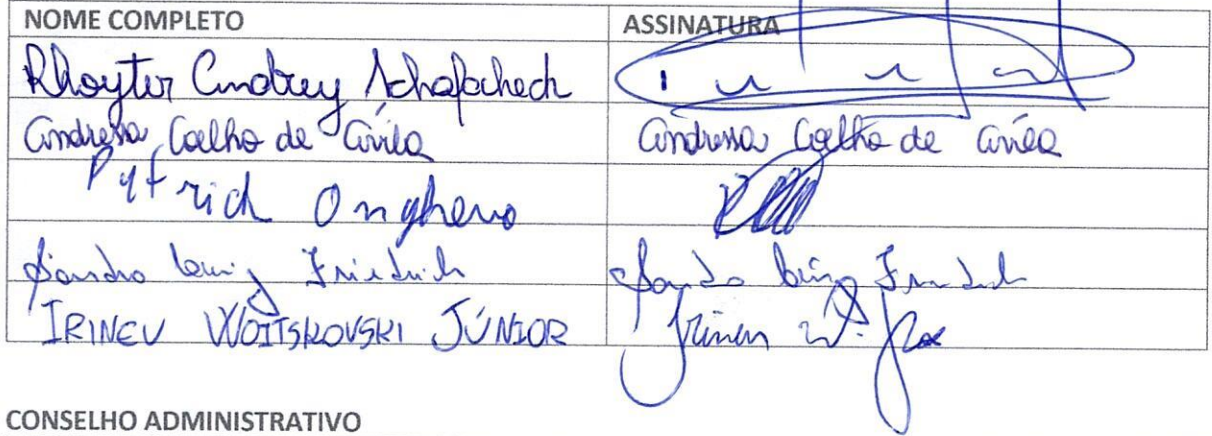 NOME COMPLETO ASSINATURA
Rhoyter Andrey Schafacheck
Andressa Coelho de Avila Andressa Coelho de Avila
Pytrich Onghero
Sandro Luiz Friedrich Sandro Luiz Friedrich
IRINEU WOITSKOVSKI JÚNIOR Irineu W. Jr
CONSELHO ADMINISTRATIVO